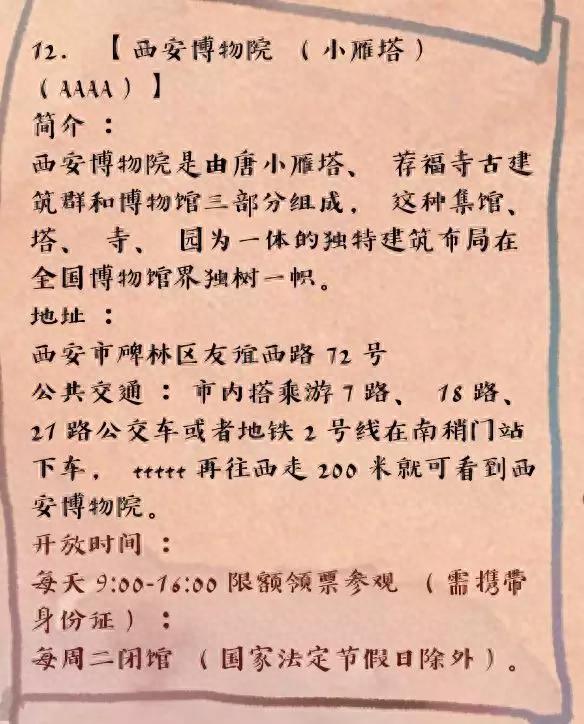 12. 【西安博物院 （小雁塔）
（AAAA）】
简介 ：
西安博物院是由唐小雁塔、 荐福寺古建
筑群和博物馆三部分组成， 这种集馆、
塔、 寺、 园为一体的独特建筑布局在
全国博物馆界独树一帜。
地址 ：
西安市碑林区友谊西路 72 号
公共交通 ： 市内搭乘游 7 路、 18 路、
21 路公交车或者地铁 2 号线在南稍门站
下车， ttttt 再往西走 200 米就可看到西
安博物院。
开放时间 ：
每天 9:00-16:00 限额领票参观 （需携带
身份证） ：
每周二闭馆 （国家法定节假日除外）。